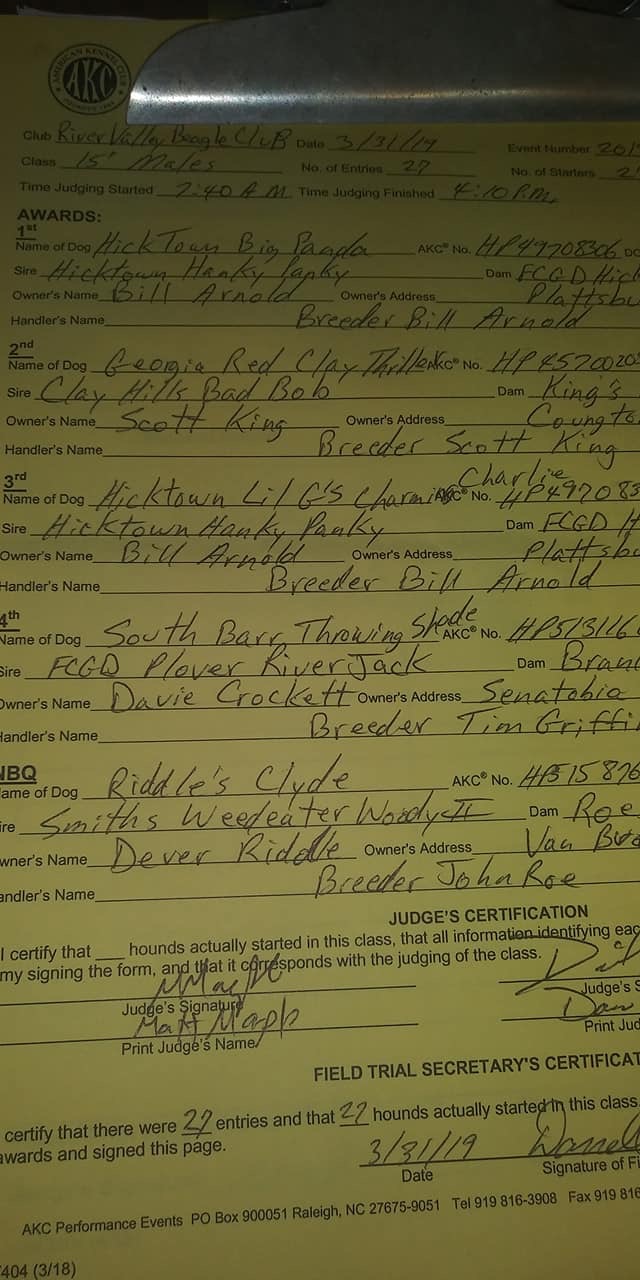 AMERICAN KENNEL CLUB
AKC
Club River Valley Beagle Club Date 3/31/19 Event Number 201
Class 15" Males No. of Entries 27 No. of Starters 2
Time Judging Started 7:40 A.M. Time Judging Finished 4:10 P.M.
AWARDS:
1st
Name of Dog HickTown Big Panda AKC® No. HP49708306 DO
Sire Hicktown Hanky Panky Dam FCGD Hick
Owner's Name Bill Arnold Owner's Address Plattsbu
Handler's Name Breeder Bill Arnold
2nd
Name of Dog Georgia Red Clay Thriller AKC® No. HP4570020
Sire Clay Hills Bad Bob Dam King's
Owner's Name Scott King Owner's Address Covingto
Handler's Name Breeder Scott King
3rd
Name of Dog Hicktown Lil G's Charming Charlie AKC® No. HP497083
Sire Hicktown Hanky Panky Dam FCGD H
Owner's Name Bill Arnold Owner's Address Plattsbu
Handler's Name Breeder Bill Arnold
4th
Name of Dog South Barr Throwing Shade AKC® No. HP513116
Sire FCGD Plover River Jack Dam Bran
Owner's Name Davie Crockett Owner's Address Senatobia
Handler's Name Breeder Tim Griffi
NBQ
ame of Dog Riddle's Clyde AKC® No. HP515876
ire Smiths Weedeater Woody II Dam Roe
wner's Name Dever Riddle Owner's Address Van Bu
andler's Name Breeder John Roe
JUDGE'S CERTIFICATION
I certify that ___ hounds actually started in this class, that all information identifying eac
my signing the form, and that it corresponds with the judging of the class.
Judge's Signature Judge's S
Matt Dan
Print Judge's Name Print Jud
FIELD TRIAL SECRETARY'S CERTIFICAT
certify that there were 27 entries and that 27 hounds actually started in this class
awards and signed this page.
3/31/19
Date Signature of Fi
AKC Performance Events PO Box 900051 Raleigh, NC 27675-9051 Tel 919 816-3908 Fax 919 816
404 (3/18)